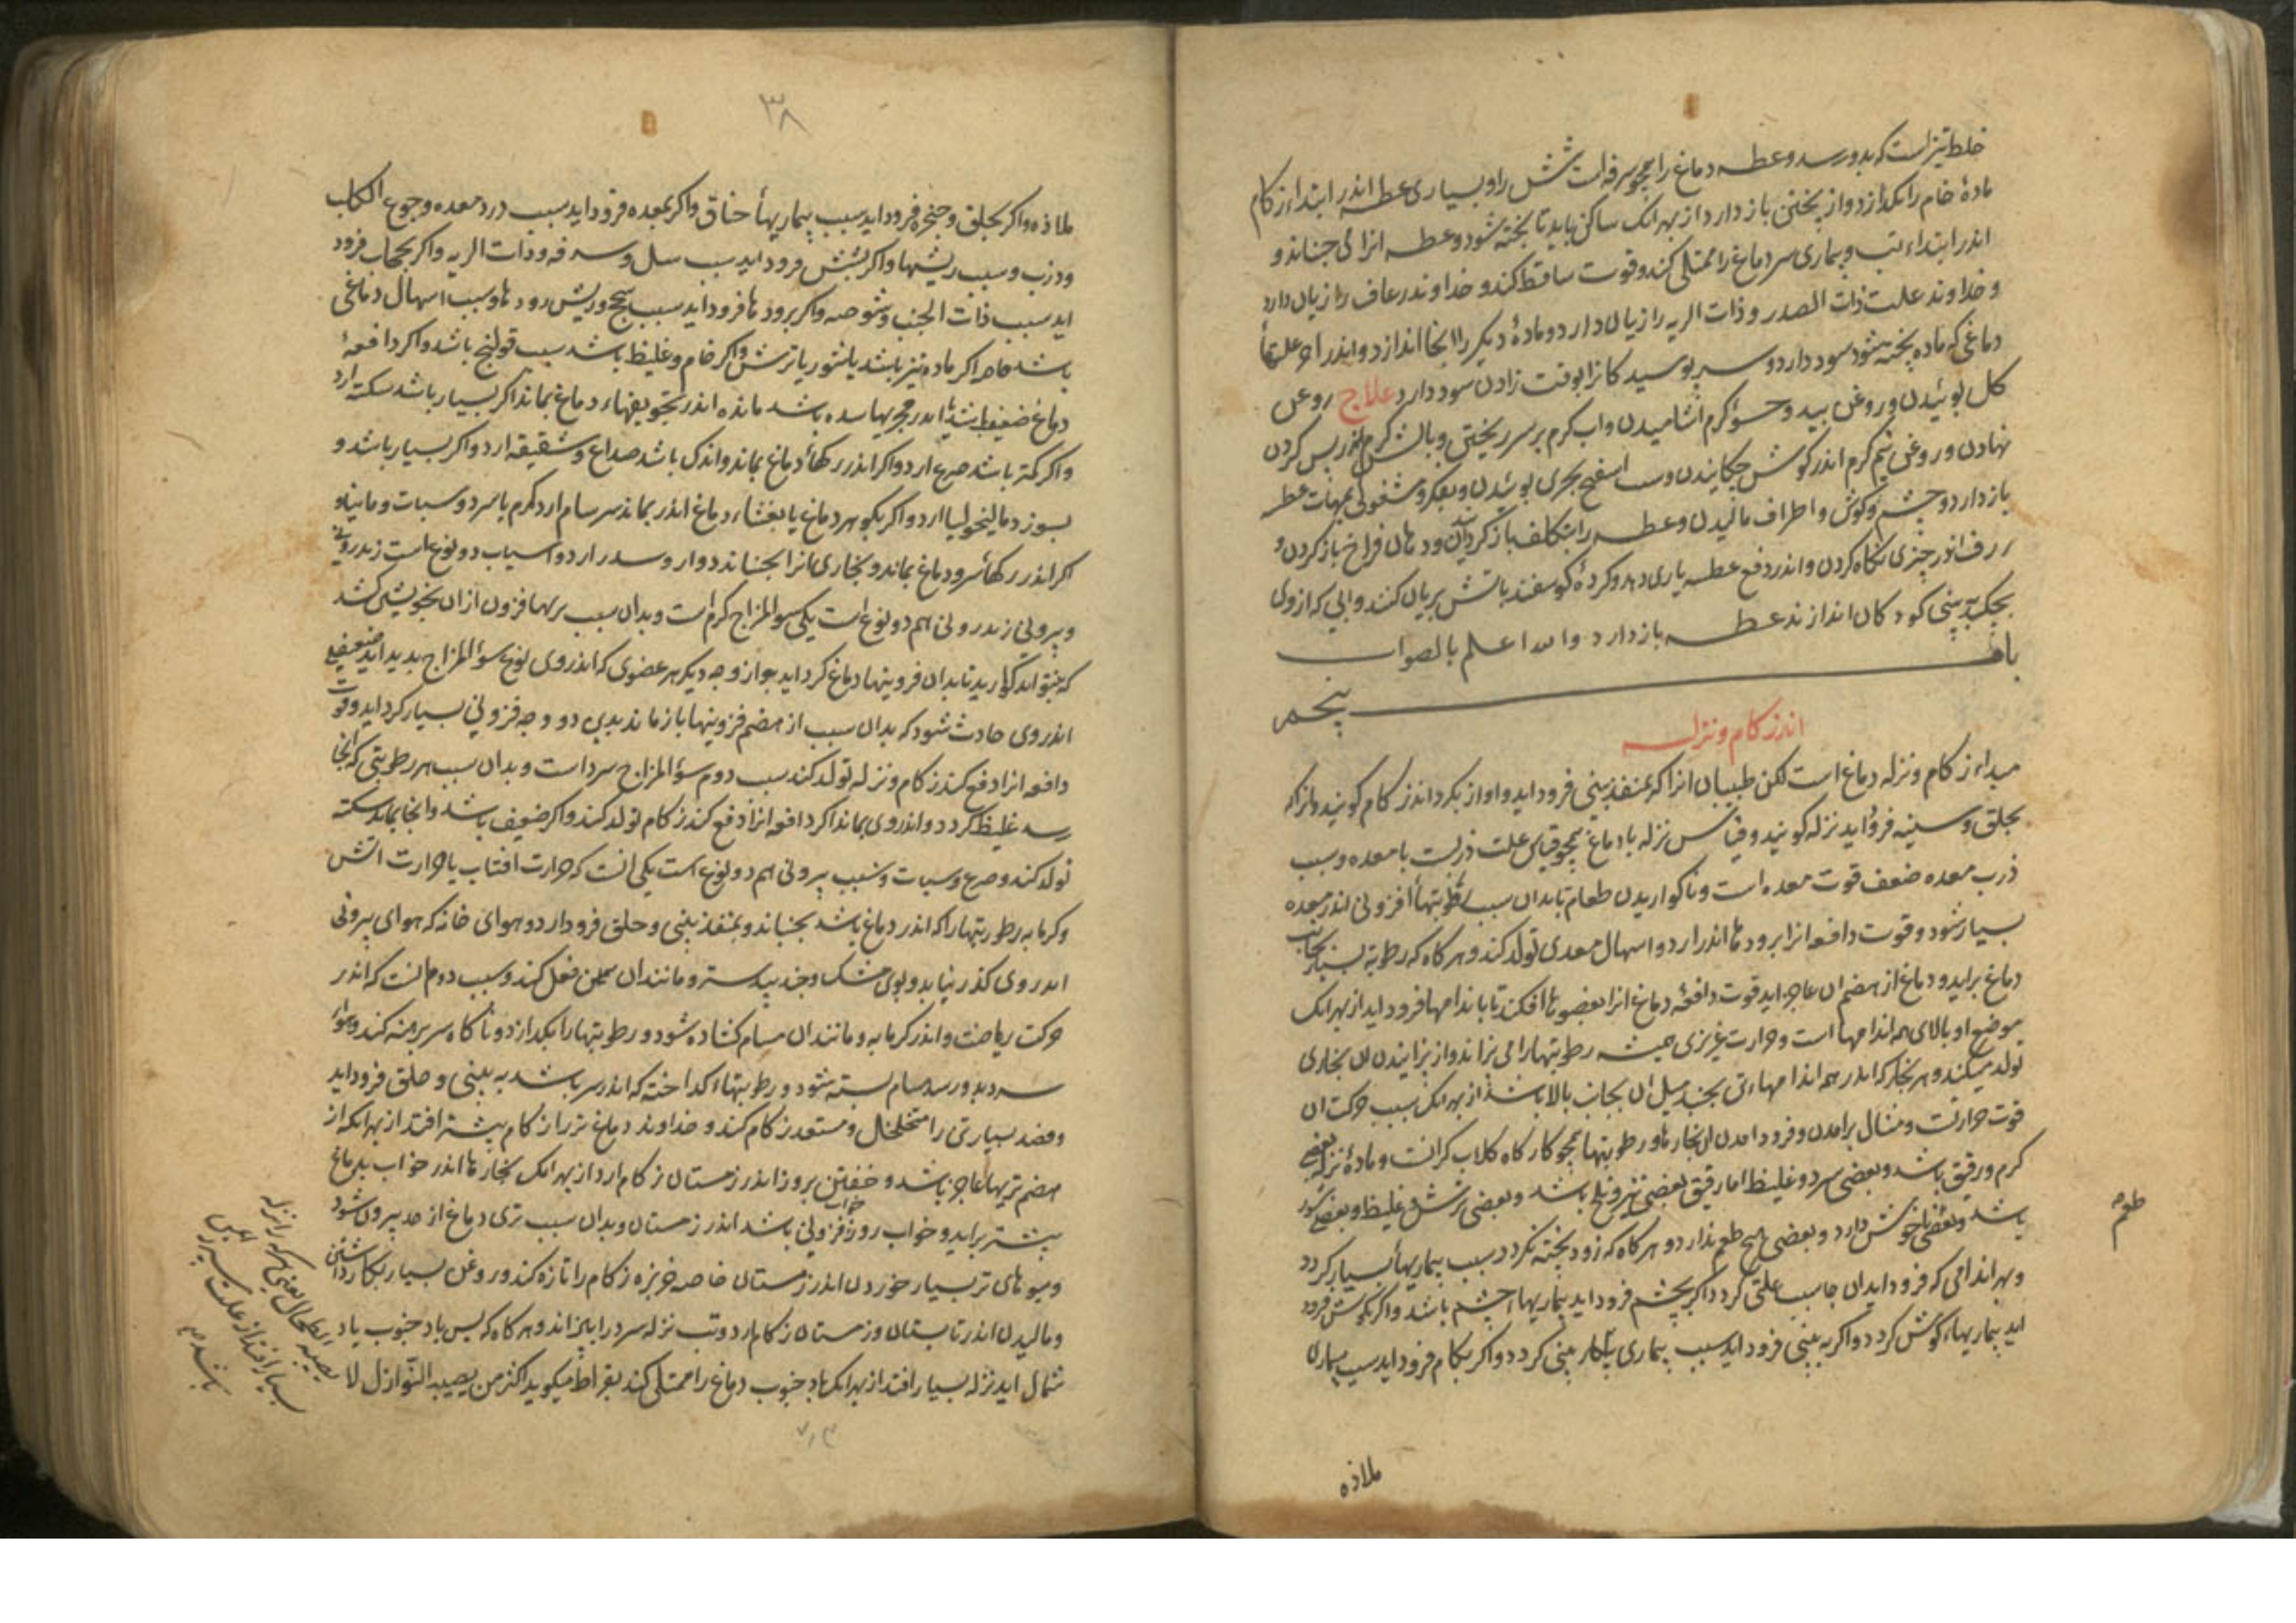 خلط تیز است که بدو رسد و عطسه دماغ را همچو سرفه است شش را و بسیاری عطسه اندر ابتداء زکام
مادهٔ خام را نکذارد و از پختن باز دارد از بهر انک ساکن باید تا پخته شود و عطسه انرا می جنباند و
اندر ابتداء تب و بیماری سر دماغ را ممتلی کند و قوت ساقط کند و خداوند رعاف را زیان دارد
و خداوند علت ذات الصدر و ذات الریه را زیان دارد و مادهٔ دیکر را انجا اندازد و اندر اخر علتهاء
دماغی که ماده پخته شود سود دارد و سر پوسید کانرا بوقت زادن سود دارد علاج روغن
کل بوئیدن و روغن بید و حسو کرم اشامیدن و اب کرم بر سر ریختن و بالش کرم اندر پس کردن
نهادن و روغن نیم کرم اندر کوش چکانیدن و اسفنج بحری بوئیدن و بفکر و مشغولی بمهمات عطسه
باز دارد و چشم و کوش و اطراف مالیدن و عطسه را بتکلف باز کردانیدن و دهان فراخ باز کردن و
ژرف اندر چیزی نکاه کردن و اندر دفع عطسه یاری دهد و کردهٔ کوسفند باتش بریان کنند و ابی که از وی
بچکد به بینی کودکان اندازند عطسه باز دارد والله اعلم بالصواب
باب پنجم
اندر زکام و نزله
مبداء زکام و نزله دماغ است لکن طبیبان انرا که بمنفذ بینی فرود اید و اواز بکرداند زکام کویند و انرا که
بحلق و سینه فرود اید نزله کویند و قیاس نزله با دماغ همچو قیاس علت ذربست با معده و سبب
ذرب معده ضعف قوت معده است و ناکواریدن طعام تا بدان سبب رطوبتهاء افزونی اندر معده
بسیار شود و قوت دافعه انرا برودها اندر ارد و اسهال معدی تولد کند و هرکاه که رطوبة بسیار بجانب
دماغ براید و دماغ از هضم ان عاجز اید قوت دافعهٔ دماغ انرا بعضوها افکند تا باندامها فرود اید از بهر انک
موضع او بالای همه اندامها است و حرارت غریزی همیشه رطوبتها را می پزاند و از پزانیدن ان بخاری
تولد میکند و هر بخار که اندر همه اندامهاء تن بجنبد میل ان بجانب بالا باشد از بهر انک سبب حرکت ان
قوت حرارتست و مثال برامدن و فرود امدن ان بخارها و رطوبتها همچو کارکاه کلاب کرانست و مادهٔ نزله بعضی
کرم و رقیق باشد و بعضی سرد و غلیظ اما رقیق بعضی تیز و تلخ باشد و بعضی ترش و غلیظ و بعضی شور
باشد و بعضی ناخوش دارد و بعضی هیچ طعم ندارد و هرکاه که زود پخته نکردد سبب بیماریهاء بسیار کردد
طعم
و بهر اندامی که فرود اید ان جا سبب علتی کردد اکر بچشم فرود اید بیماریهاء چشم باشد و اکر بکوش فرود
اید بیماریهاء کوش کردد و اکر به بینی فرود اید سبب بیماری بینی کردد و اکر بکام فرود اید سبب بیماری
ملاذه
٣٨
ملاذه و اکر بحلق و حنجره فرود اید سبب بیماریهاء خناق و اکر بمعده فرود اید سبب درد معده و جوع الکلب
و ذرب و سبب ریشها و اکر بشش فرود اید سبب سل و سرفه و ذات الریه و اکر بحجاب فرود
اید سبب ذات الجنب و شوصه و اکر برودها فرود اید سبب سحج و ریش رودها و سبب اسهال دماغی
باشد خاصه اکر ماده تیز باشد یا شور یا ترش و اکر خام و غلیظ باشد سبب قولنج باشد و اکر دافعهٔ
دماغ ضعیف باشد یا اندر مجریها سده باشد ماده اندر تجویفهاء دماغ بماند اکر بسیار باشد سکته ارد
و اکر کمتر باشد صرع ارد و اکر اندر رکهاء دماغ بماند و اندک باشد صداع و شقیقه ارد و اکر بسیار باشد و
بسوزد مالیخولیا ارد و اکر بکوهر دماغ یا بغشاء دماغ اندر بماند سرسام ارد کرم یا سرد و سبات و مانیا و
اکر اندر رکهاء سر و دماغ بماند و بخاری انرا بجنباند دوار و سدر ارد و اسباب دو نوع است زندرونی
و بیرونی زندرونی هم دو نوع است یکی سوء المزاج کرم است و بدان سبب تریها افزون از ان بخویشتن کشد
که بتواند کوارید تا بدان فزونیها دماغ کرد اید و از وجه دیکر هر عضوی که اندر وی نوع سوء المزاج پدید اید ضعیفی
اندر وی حادث شود که بدان سبب از هضم فزونیها باز ماند بدین دو وجه فزونی بسیار کرد اید و قوت
دافعه انرا دفع کند زکام و نزله تولد کند سبب دوم سوء المزاج سرد است و بدان سبب هر رطوبتی که انجا
رسد غلیظ کردد و اندر وی بماند اکر دافعه انرا دفع کند زکام تولد کند و اکر ضعیف باشد و انجا بماند سکته
تولد کند و صرع و سبات و سبب بیرونی هم دو نوع است یکی انست که حرارت افتاب یا حرارت اتش
و کرمابه رطوبتها را که اندر دماغ باشد بجنباند و بمنفذ بینی و حلق فرود ارد و هوای خانه که هوای بیرونی
اندر وی کذر نیابد و بوی مشک و جند بیدستر و مانند ان همین فعل کند و سبب دوم انست که اندر
حرکت ریاضت و اندر کرمابه و مانند ان مسام کشاده شود و رطوبتها را بکدازد و ناکاه سر برهنه کند و هواء
سرد بدو رسد مسام بسته شود و رطوبتهاء کداخته که اندر سر باشد به بینی و حلق فرود اید
و فصد بسیار تن را متخلخل و مستعد زکام کند و خداوند دماغ تر را زکام بیشتر افتد از بهر انکه از
هضم تریها عاجز باشد و خفتن بروز اندر زمستان زکام ارد از بهر انک بخارها اندر خواب بدماغ
بیشتر براید و خواب روز خواب فزونی باشد اندر زمستان و بدان سبب تری دماغ از حد بیرون شود
و میوهای تر بسیار خوردن اندر زمستان خاصه خربزه زکام را تازه کند و روغن بسیار بکار داشتن
و مالیدن اندر تابستان و زمستان زکام ارد و تب نزله سرد را بپزاند و هرکاه که پس باد جنوب باد
شمال اید نزله بسیار افتد از بهر انک باد جنوب دماغ را ممتلی کند بقراط میکوید اکثر من یصیبه النوازل لا
یصیبه الطحال یعنی هرکه را نزله
بسیار افتد از علت سپرز ایمن
باشد